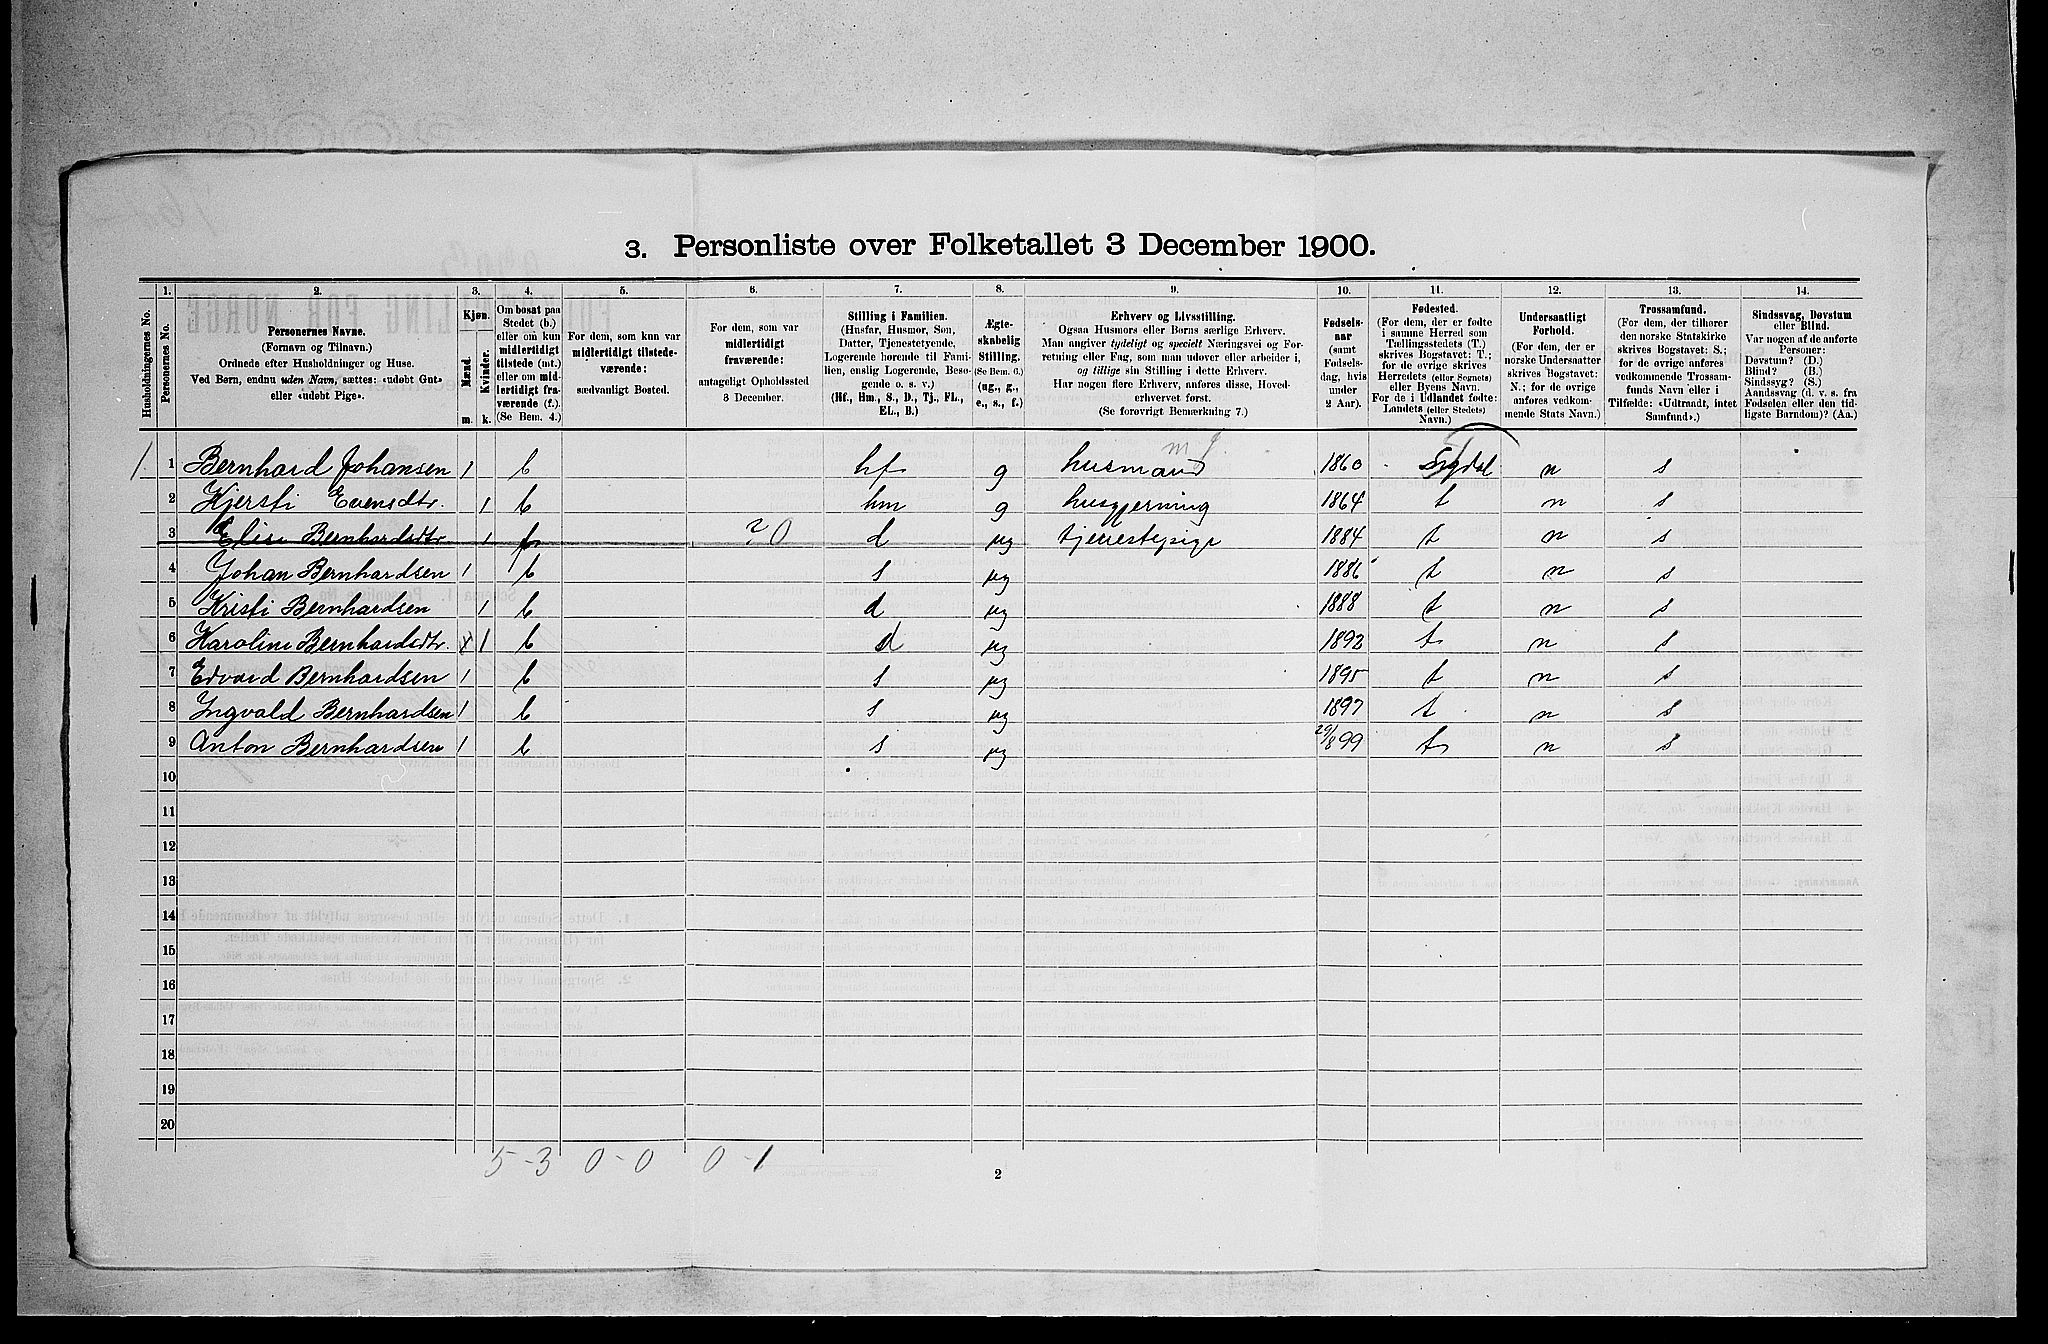 3. Personliste over Folketallet 3 December 1900.
1. 2. 3. 4. 5. 6. 7. 8. 9. 10. 11. 12. 13. 14.
Husholdningernes No.
Personernes No.
Personernes Navne.
(Fornavn og Tilnavn.)
Ordnede efter Husholdninger og Huse.
Ved Børn, endnu uden Navn, sættes: «udøbt Gut»
eller «udøbt Pige».
Kjøn.
Mænd. Kvinder.
m. k.
Om bosat paa
Stedet (b.)
eller om kun
midlertidigt
tilstede (mt.)
eller om mid-
lertidigt fra-
værende (f.)
(Se Bem. 4.)
For dem, som kun var
midlertidigt tilstede-
værende:
sædvanligt Bosted.
For dem, som var
midlertidigt
fraværende:
antageligt Opholdssted
3 December.
Stilling i Familien.
(Husfar, Husmor, Søn,
Datter, Tjenestetyende,
Logerende hørende til Fami-
lien, enslig Logerende, Besø-
gende o. s. v.)
(Hf., Hm., S., D., Tj., FL.,
EL., B.)
Ægte-
skabelig
Stilling.
(Se Bem. 6.)
(ug., g.,
e., s., f.)
Erhverv og Livsstilling.
Ogsaa Husmors eller Børns særlige Erhverv.
Man angiver tydeligt og specielt Næringsvei og For-
retning eller Fag, som man udover eller arbeider i,
og tillige sin Stilling i dette Erhverv.
Har nogen flere Erhverv, anføres disse, Hoved-
erhvervet først.
(Se forøvrigt Bemærkning 7.)
Fødsels-
aar
(samt
Fødsels-
dag, hvis
under
2 Aar).
Fødested.
(For dem, der er fødte
i samme Herred som
Tællingsstedets (T.)
skrives Bogstavet: T.;
for de øvrige skrives
Herredets (eller Sognets)
eller Byens Navn.
For de i Udlandet fødte:
Landets (eller Stedets)
Navn.)
Undersaatligt
Forhold.
(For dem, der er
norske Undersaatter
skrives Bogstavet:
N.; for de øvrige
anføres vedkom-
mende Stats Navn.)
Trossamfund.
(For dem, der tilhører
den norske Statskirke
skrives Bogstavet: S.;
for de øvrige anføres
vedkommende Trossam-
funds Navn eller i
Tilfælde: «Udtraadt, intet
Samfund».)
Sindssvag, Døvstum
eller Blind.
Var nogen af de anførte
Personer:
Døvstum? (D.)
Blind? (B.)
Sindssyg? (S.)
Aandssvag (d. v. s. fra
Fødselen eller den tid-
ligste Barndom)? (Aa.)
1. 1 Bernhard Johansen 1 b hf g husmand 1860 n s
2 Kjersti Evensdtr. 1 b hm g husgjerning 1864 t n s
3 Elise Bernhardsdtr 1 f ? 0 d ug tjenestepige 1884 t n s
4 Johan Bernhardsen 1 b s ug 1886 t n s
5 Kristi Bernhardsen 1 b d ug 1888 t n s
6 Karoline Bernhardsdtr. x 1 b d ug 1892 t n s
7 Edvard Bernhardsen 1 b s ug 1895 t n s
8 Ingvald Bernhardsen 1 b s ug 1897 t n s
9 Anton Bernhardsen 1 b s ug 29/8 99 t n s
10
11
12
13
14
15
16
17
18
19
20
5-3 0-0 0-1
2